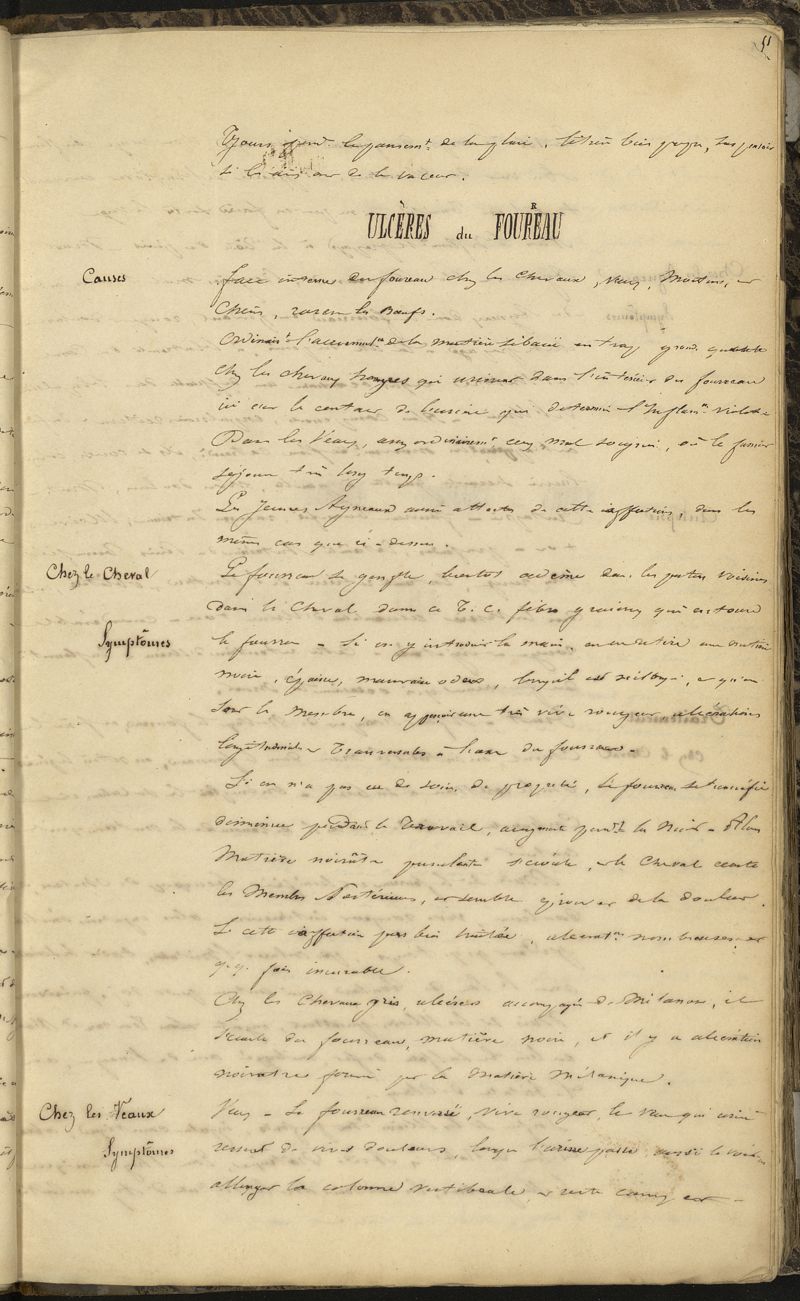 51
Toujours pend.t le pansem.t de la plaie, litière bien propre,
si les
ULCÈRES du FOURREAU
Causes
face interne du foureau chez les chevaux, veaux, Moutons, et
Chiens, rarem. les Bœufs.
Ordinair.t l'accumulat.n de la matière sébacée en trop grand. quantité
chez les chevaux hongres qui urinent dans l'intérieur du fourreau
ici c'est le contact de l'urine qui détermine l'Inflam.n violente
Dans les Veaux, assez ordinairem.t ceux mal soignés, où le fumier
séjourne très long temps.
Les Jeunes Agneaux aussi atteints de cette affection, dans les
mêmes cas que ci-dessus.
Chez le Cheval
Le fourreau se gonfle, bientôt œdème dans les parties voisines
dans le Cheval dans ce T. C. fibro graisseux qui entoure
Symptômes
le fourreau - Si on y introduit la main, on en retire une matière
noire, épaisse, mauvaise odeur, lorsqu'il est nettoyé, et qu'on
sort le membre, on apperçoit une très vive rougeur, ulcérations
longitudinales et Transversales à l'axe du fourreau -
Si on n'a pas eu de soins de propreté, le fourreau se tuméfie
diminue pendant le Travail, augmente pend.t la Nuit - Alors
Matière noirâtre purulente s'écoule, et le Cheval écarte
les Membres Postérieurs, et semble éprouver de la douleur.
Si cette affection pas bien traitée, ulcérat.ns nombreuses et
q.q. fois incurable.
Chez les Chevaux gris, ulcères accompagnés de Mélanose, il
s'écoule du fourreau, matière noire, et il y a ulcération
noirâtre formée par la Matière Mélanique.
Chez les Veaux
Veaux - Le fourreau renversé, vive rougeur, le veau qui urine
Symptômes
ressent de vives douleurs, lorsque l'urine passe, aussi le voit-on
allonger la colonne vertébrale, et reste campé et -